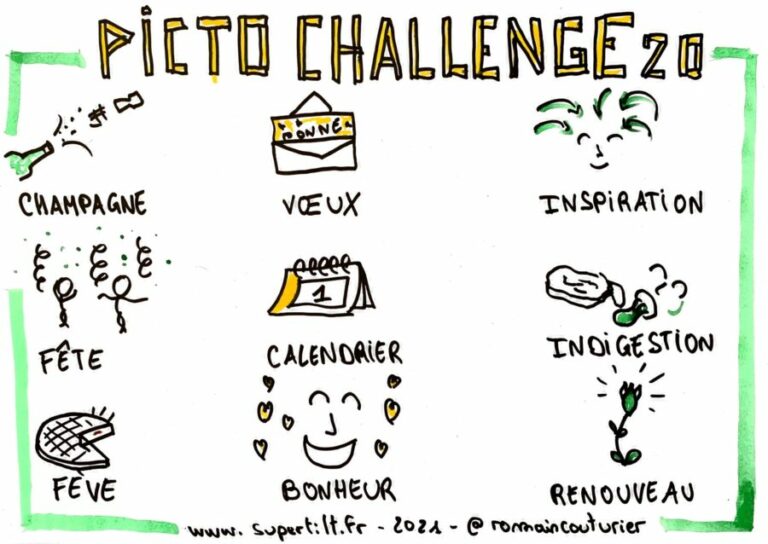 PICTO CHALLENGE 20
BONNE
CHAMPAGNE
VŒUX
INSPIRATION
1
FÊTE
CALENDRIER
INDIGESTION
FÈVE
BONHEUR
RENOUVEAU
www.supertilt.fr - 2021 - @romaincouturier